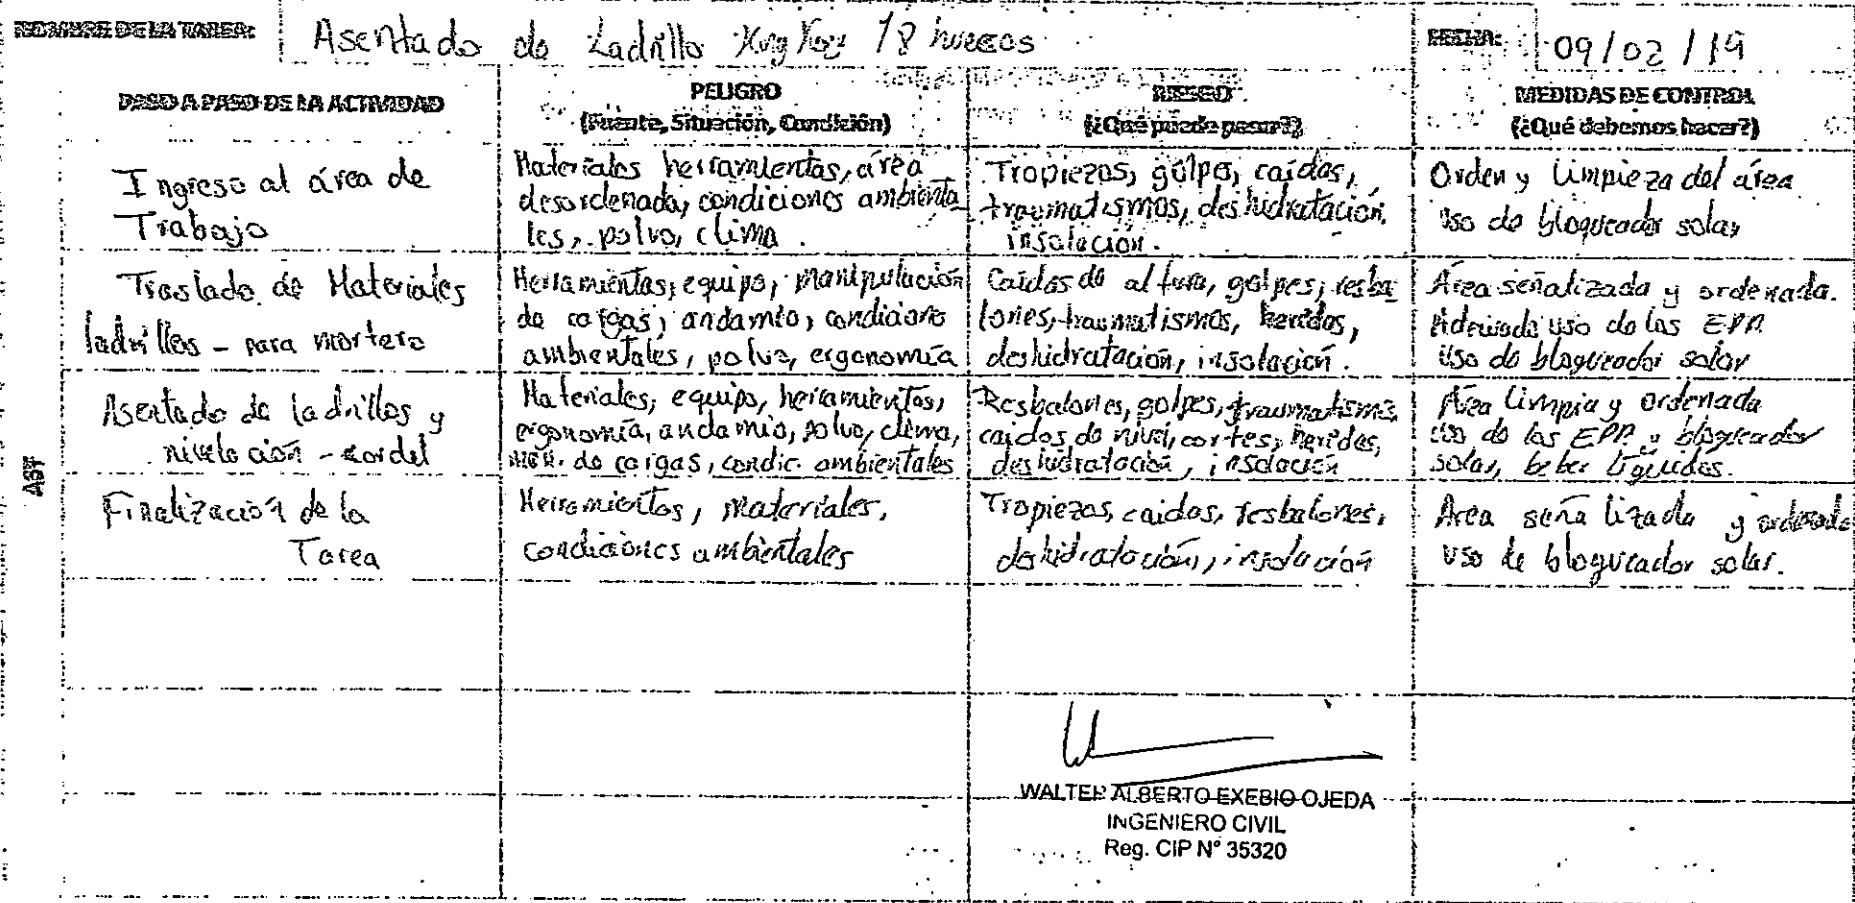 NOMBRE DE LA TAREA: Asentado de Ladrillo King Kong 18 huecos FECHA: 09/02/19
PASO A PASO DE LA ACTIVIDAD
PELIGRO
(Fuente, Situación, Condición)
RIESGO
(¿Qué puede pasar?)
MEDIDAS DE CONTROL
(¿Qué debemos hacer?)
Ingreso al área de
Trabajo
Materiales herramientas, área
desordenada, condiciones ambienta
les, polvo, clima.
Tropiezos, golpes, caídas,
traumatismos, deshidratación,
insolación.
Orden y Limpieza del área
uso de bloqueador solar
Traslado de Materiales
ladrillos - para mortero
Herramientas, equipo, manipulación
de cargas, andamio, condiciones
ambientales, polvo, ergonomía
Caídas de altura, golpes, resba
lones, traumatismos, heridas,
deshidratación, insolación.
Área señalizada y ordenada.
Adecuada uso de las EPP.
Uso de bloqueador solar
Asentado de ladrillos y
nivelación - cordel
Materiales, equipo, herramientas,
ergonomía, andamio, polvo, clima,
man. de cargas, condic. ambientales
Resbalones, golpes, traumatismo,
caidas de nivel, cortes, heridas,
deshidratación, insolación
Área Limpia y Ordenada
uso de las EPP. y bloqueador
solar, beber líquidos.
AST
Finalización de la
Tarea
Herramientas, materiales,
condiciones ambientales
Tropiezos, caidas, resbalones,
deshidratación, insolación
Area señalizada y ordenada
uso de bloqueador solar.
WALTER ALBERTO EXEBIO OJEDA
INGENIERO CIVIL
Reg. CIP N° 35320